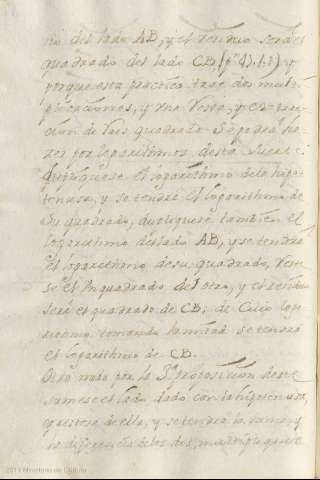 do del lado AB, y el residuo será el
quadrado del lado CB, (p. 47. l. 1) y
porque esta practica trae dos multi
plicaciones, y una resta, y extrac
cion de Rais quadrada se podrá ha
zer por logarithmos desta suerte:
Dupliquese el logarithmo dela hipo
tenusa, y se tendrá el logarithmo de
su quadrado, dupliquese tambien el
logarithmo del lado AB, y se tendrá
el logarithmo de su quadrado, res
se el un quadrado del otro, y el residuo
será el quadrado de CB, de cuio loga
rithmo tomando la mitad se tendrá
el logarithmo de CB.
Otro modo por la 3ª proposicion
sumese el lado dado con la hipotenusa,
y restese de ella, y se tendrá la suma, y
la diferencia de los dos, multipliquese
2013 Ministerio de Cultura